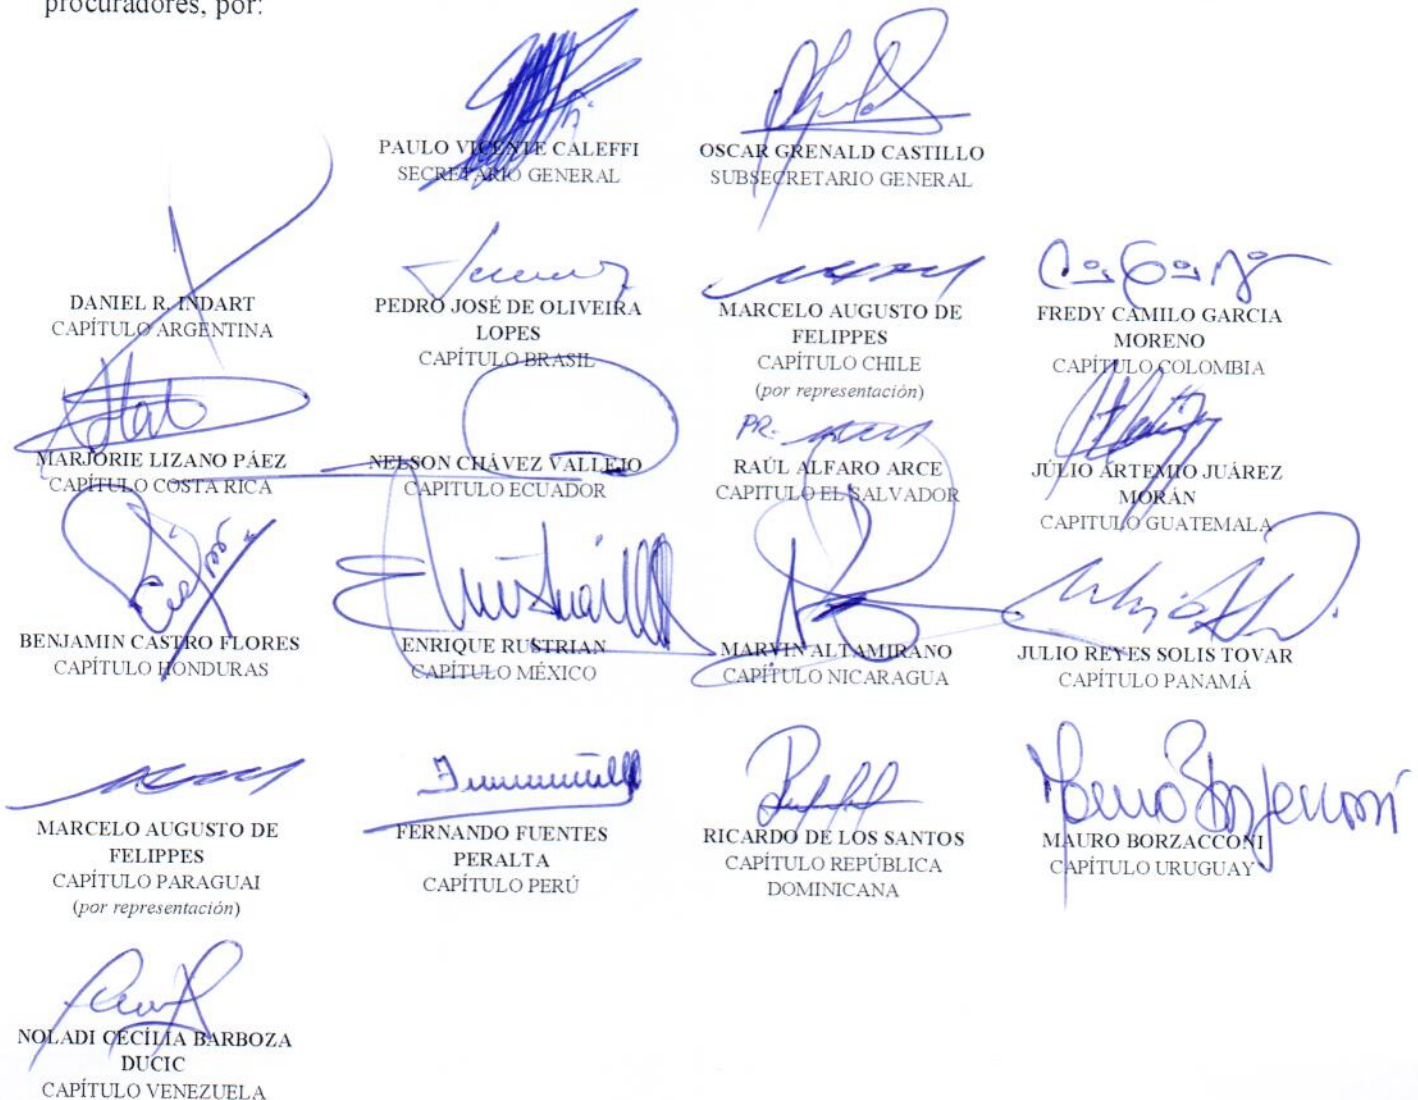 procuradores, por:
PAULO VICENTE CALEFFI
SECRETARIO GENERAL
OSCAR GRENALD CASTILLO
SUBSECRETARIO GENERAL
DANIEL R. INDART
CAPÍTULO ARGENTINA
PEDRO JOSÉ DE OLIVEIRA
LOPES
CAPÍTULO BRASIL
MARCELO AUGUSTO DE
FELIPPES
CAPÍTULO CHILE
(por representación)
FREDY CAMILO GARCIA
MORENO
CAPÍTULO COLOMBIA
MARJORIE LIZANO PÁEZ
CAPÍTULO COSTA RICA
NELSON CHÁVEZ VALLEJO
CAPITULO ECUADOR
PR.
RAÚL ALFARO ARCE
CAPITULO EL SALVADOR
JÚLIO ARTEMIO JUÁREZ
MORÁN
CAPITULO GUATEMALA
BENJAMIN CASTRO FLORES
CAPÍTULO HONDURAS
ENRIQUE RUSTRIAN
CAPÍTULO MÉXICO
MARVIN ALTAMIRANO
CAPÍTULO NICARAGUA
JULIO REYES SOLIS TOVAR
CAPÍTULO PANAMÁ
MARCELO AUGUSTO DE
FELIPPES
CAPÍTULO PARAGUAI
(por representación)
FERNANDO FUENTES
PERALTA
CAPÍTULO PERÚ
RICARDO DE LOS SANTOS
CAPÍTULO REPÚBLICA
DOMINICANA
MAURO BORZACCONI
CAPÍTULO URUGUAY
NOLADI CECÍLIA BARBOZA
DUCIC
CAPÍTULO VENEZUELA